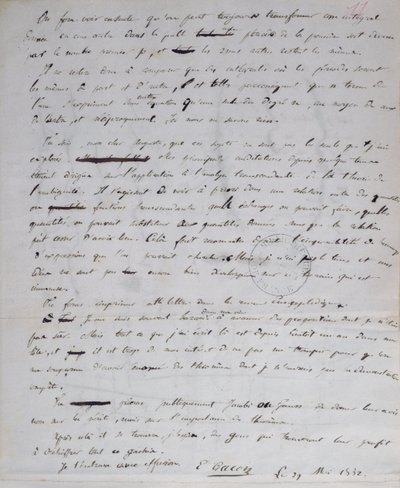 On fera voir ensuite qu'on peut toujours transformer une intégrale
donnée en une autre dans laquelle période de la première soit divisée
par le nombre premier p, et les 2n-1 autres restent les mêmes.
Il ne restera donc à comparer que des intégrales où les périodes seront
les mêmes de part et d'autre, et telles par conséquent que n termes de
l'une s'expriment sans autre équation qu'une seule du degré n, au moyen de ceux
de l'autre, et réciproquement. Ici nous ne savons rien.
Tu sais, mon cher Auguste, que ces sujets ne sont pas les seuls que j'aie
explorés. Mes principales méditations depuis quelque temps
étaient dirigées sur l'application à l'analyse transcendante de la théorie de
l'ambiguité. Il s'agissait de voir à priori dans une relation entre des quantités
ou fonctions transcendantes quels échanges on pouvait faire, quelles
quantités on pouvait substituer aux quantités données sans que la relation
put cesser d'avoir lieu. Cela fait reconnaitre l'impossibilité de beaucoup
d'expressions que l'on pouvait chercher. Mais je n'ai pas le temps et mes
idées ne sont pas encore bien développées sur ce terrain qui est
immense.
Tu feras imprimer cette lettre dans la revue Encyclopédique.
Je me suis souvent hasardé dans ma vie à avancer des propositions dont je n'étais
pas sûr. Mais tout ce que j'ai écrit là est depuis bientôt un an dans ma
tête, et il est trop de mon intérêt de ne pas me tromper pour qu'on
me soupçonne d'avoir énoncé des théorèmes dont je n'aurais pas la démonstration
complète.
Tu prieras publiquement Jacobi ou Gauss de donner leur avis
non sur la vérité, mais sur l'importance des théorèmes.
Après cela il se trouvera, j'espère, des gens qui trouveront leur profit
à déchiffrer tout ce gachis.
Je t'embrasse avec effusion. E Galois Le 29 Mai 1832.